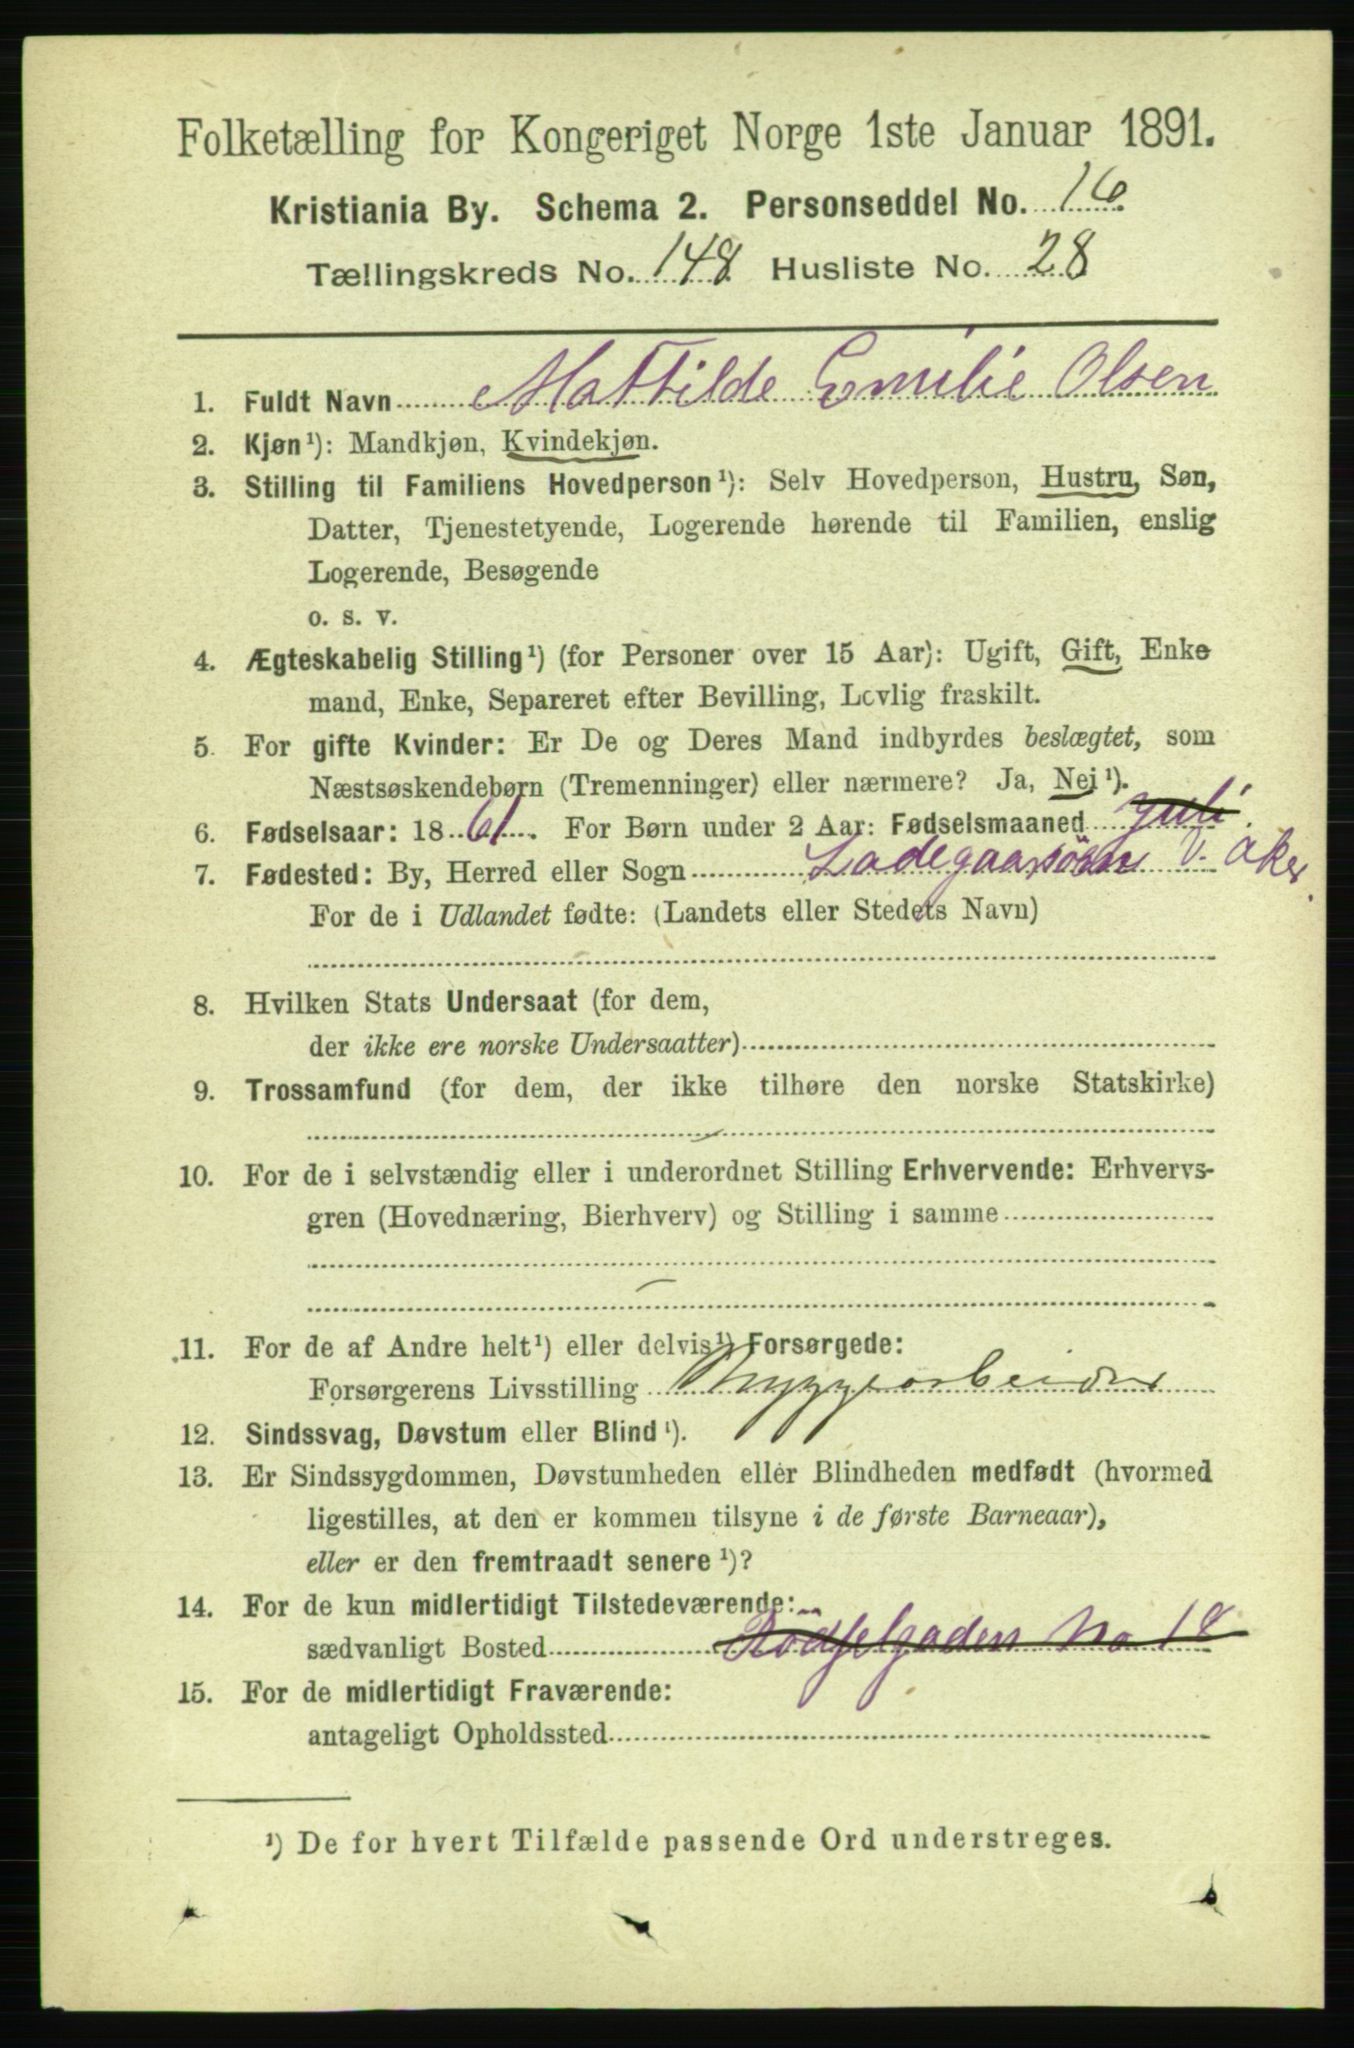 Folketælling for Kongeriget Norge 1ste Januar 1891.
Kristiania By. Schema 2. Personseddel No. 16
Tællingskreds No. 148 Husliste No. 28
1. Fuldt Navn Mathilde Emilie Olsen
2. Kjøn¹): Mandkjøn, Kvindekjøn.
3. Stilling til Familiens Hovedperson¹): Selv Hovedperson, Hustru, Søn,
Datter, Tjenestetyende, Logerende hørende til Familien, enslig
Logerende, Besøgende
o. s. v.
4. Ægteskabelig Stilling¹) (for Personer over 15 Aar): Ugift, Gift, Enke
mand, Enke, Separeret efter Bevilling, Lovlig fraskilt.
5. For gifte Kvinder: Er De og Deres Mand indbyrdes beslægtet, som
Næstsøskendebørn (Tremenninger) eller nærmere? Ja, Nej¹).
6. Fødselsaar: 1861. For Børn under 2 Aar: Fødselsmaaned juli.
7. Fødested: By, Herred eller Sogn Ladegaarsöen V. Aker.
For de i Udlandet fødte: (Landets eller Stedets Navn)
8. Hvilken Stats Undersaat (for dem,
der ikke ere norske Undersaatter)
9. Trossamfund (for dem, der ikke tilhøre den norske Statskirke)
10. For de i selvstændig eller i underordnet Stilling Erhvervende: Erhvervs-
gren (Hovednæring, Bierhverv) og Stilling i samme
11. For de af Andre helt¹) eller delvis¹) Forsørgede:
Forsørgerens Livsstilling Bryggearbeider
12. Sindssvag, Døvstum eller Blind¹).
13. Er Sindssygdommen, Døvstumheden eller Blindheden medfødt (hvormed
ligestilles, at den er kommen tilsyne i de første Barneaar),
eller er den fremtraadt senere¹)?
14. For de kun midlertidigt Tilstedeværende:
sædvanligt Bosted Rödfjelgaden No 18
15. For de midlertidigt Fraværende:
antageligt Opholdssted
¹) De for hvert Tilfælde passende Ord understreges.